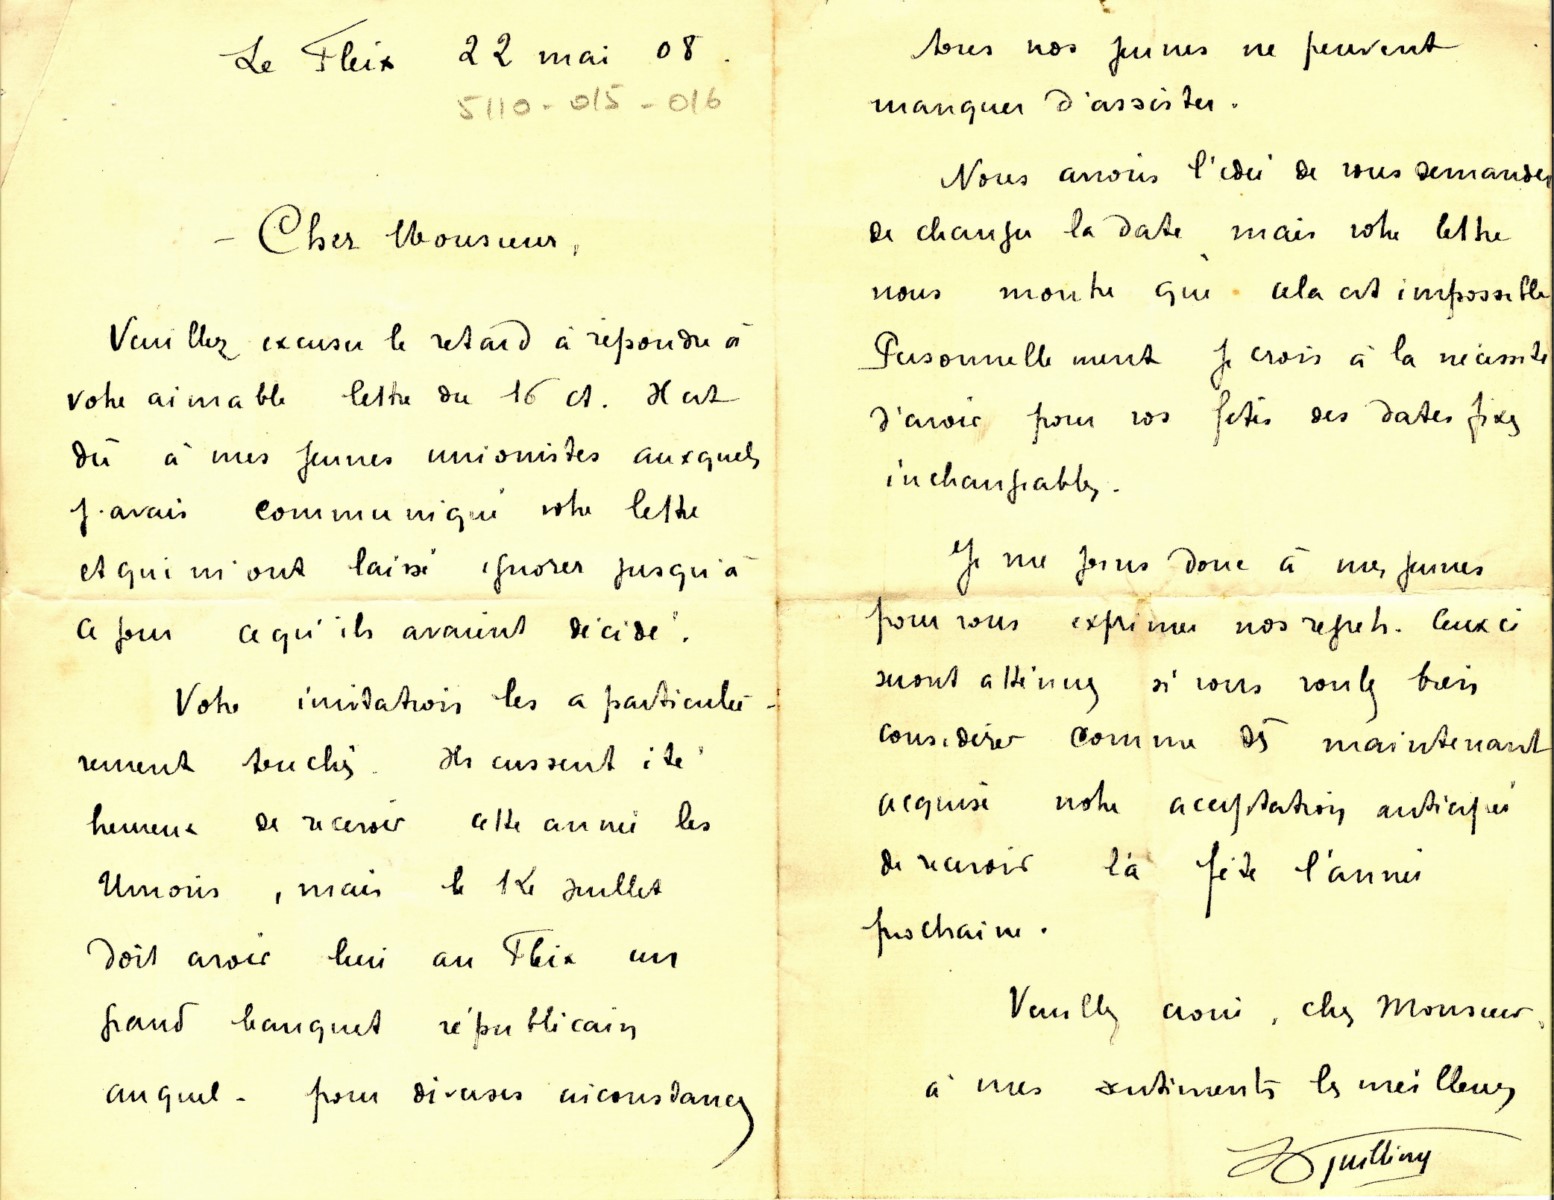 Le Fleix 22 mai 08.
5110-015-016
- Cher Monsieur,
Veuillez excuser le retard à répondre à
votre aimable lettre du 16 ct. Il est
dû à mes jeunes unionistes auxquels
j'avais communiqué votre lettre
et qui m'ont laissé ignorer jusqu'à
ce jour ce qu'ils avaient décidé.
Votre invitation les a particuliè-
rement touchés. Ils eussent été
heureux de recevoir cette année les
Unions, mais le 14 Juillet
doit avoir lieu au Fleix un
grand banquet républicain
auquel - pour diverses circonstances
tous nos jeunes ne peuvent
manquer d'assister.
Nous avons l'idée de vous demander
de changer la date mais votre lettre
nous montre que cela est impossible
Personnellement je crois à la nécessité
d'avoir pour vos fêtes des dates fixes
inchangeables.
Je me joins donc à mes jeunes
pour vous exprimer nos regrets. Ceux ci
seront atténués si vous voulez bien
considérer comme dès maintenant
acquise notre acceptation anticipée
de recevoir la fête l'année
prochaine.
Veuillez croire, cher Monsieur,
à mes sentiments les meilleurs